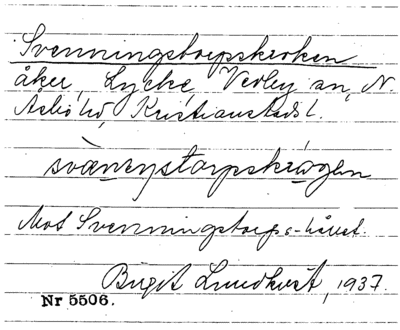 Svenningstorpskroken
åker, Lycke, Verley sn, N.
Åsbo hd, Kristianstads l.
svæneŋstorpskrɷ̀ogen
Mot Svenningstorps-hållet.
Birgit Lundkvist, 1937.
Nr 5506.